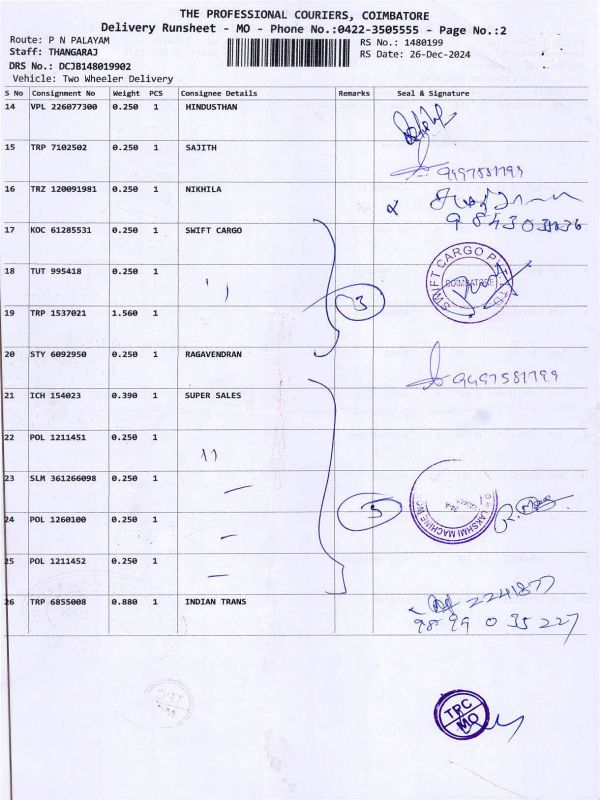 THE PROFESSIONAL COURIERS, COIMBATORE
Delivery Runsheet - MO - Phone No.:0422-3505555 - Page No.:2
Route: P N PALAYAM
RS No.: 1480199
Staff: THANGARAJ
RS Date: 26-Dec-2024
DRS No.: DCJB148019902
Vehicle: Two Wheeler Delivery
S No Consignment No Weight PCS Consignee Details Remarks Seal & Signature
14 VPL 226077300 0.250 1 HINDUSTHAN
15 TRP 7102502 0.250 1 SAJITH
16 TRZ 120091981 0.250 1 NIKHILA
17 KOC 61285531 0.250 1 SWIFT CARGO
18 TUT 995418 0.250 1 11
SWIFT CARGO
COIMBATORE
3
19 TRP 1537021 1.560 1
20 STY 6092950 0.250 1 RAGAVENDRAN
9497581799
21 ICH 154023 0.390 1 SUPER SALES
22 POL 1211451 0.250 1 11
23 SLM 361266098 0.250 1 -
LAKSHMI MACHINE
5
24 POL 1260100 0.250 1 -
25 POL 1211452 0.250 1 -
26 TRP 6855008 0.880 1 INDIAN TRANS
2241877
9899035227
TPC
MO